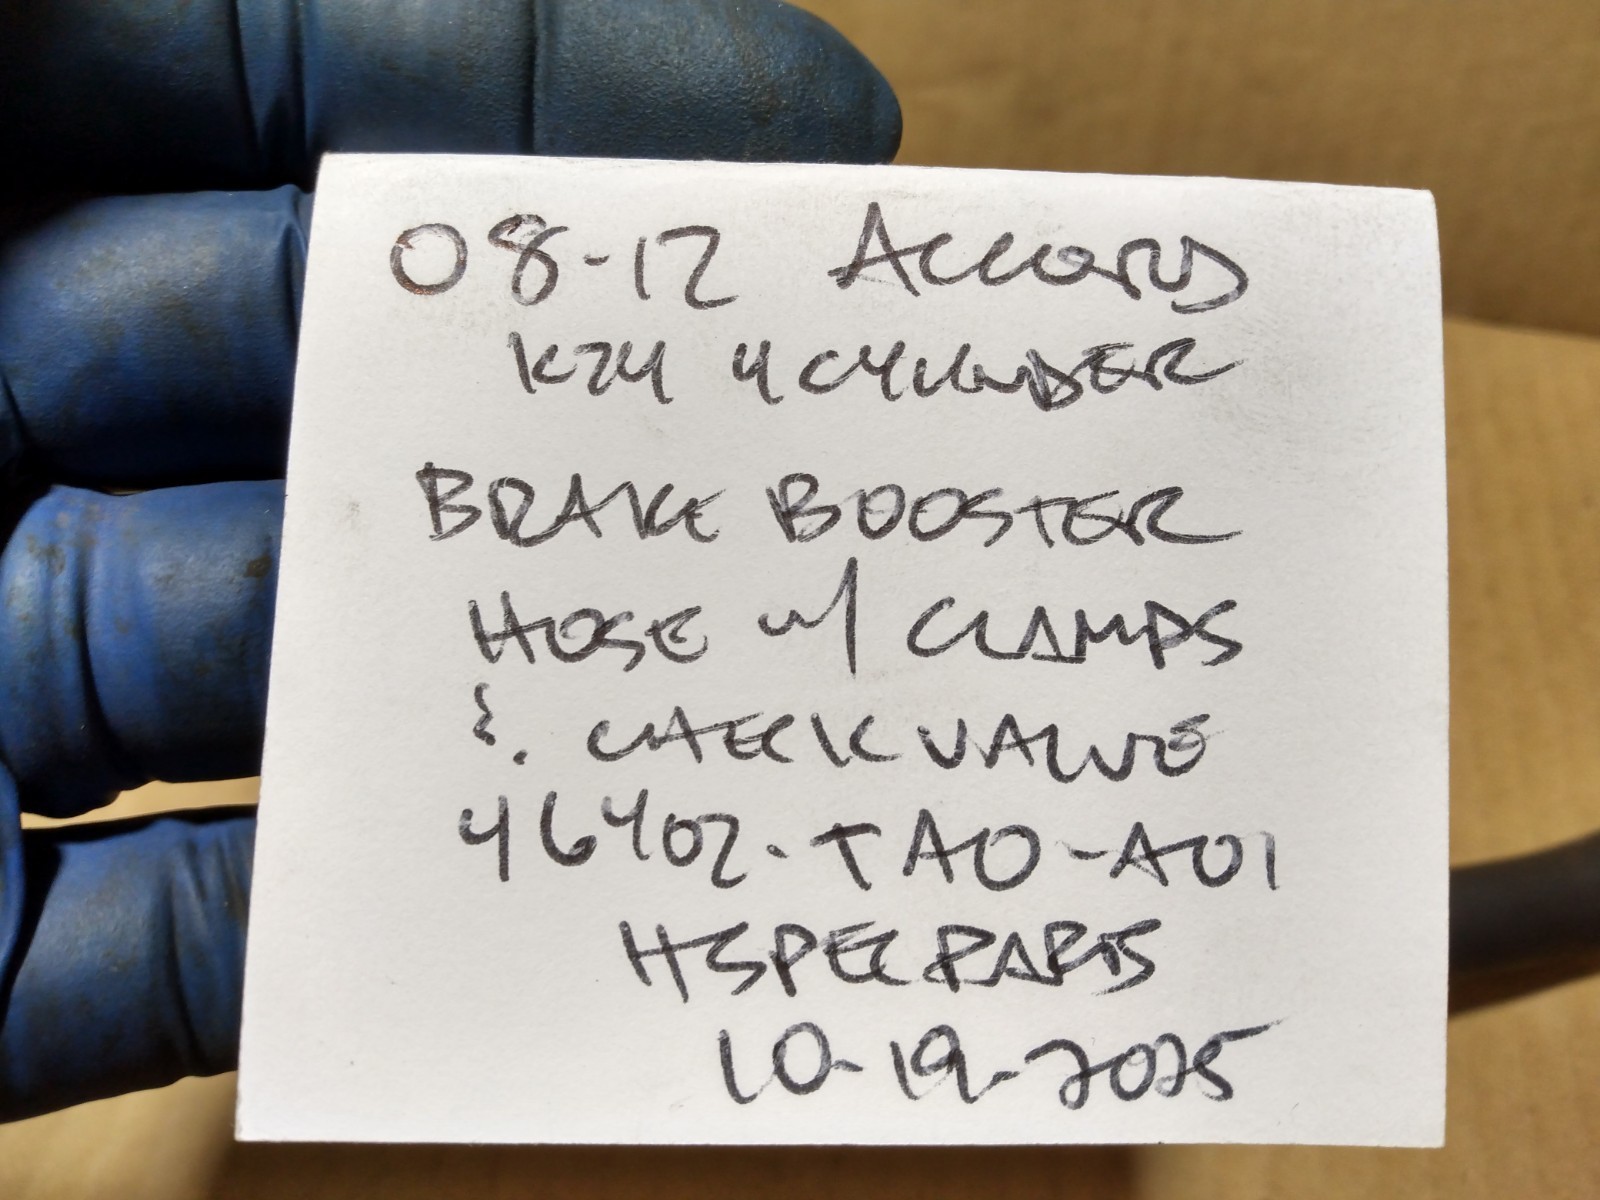 08-12 ACCORD
K24 4 CYLINDER
BRAKE BOOSTER
HOSE w/ CLAMPS
& CHECK VALVE
46402-TA0-A01
HSPECPARTS
10-19-2025